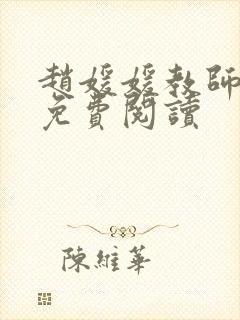 趙媛媛教師
免費閱讀
陳維華